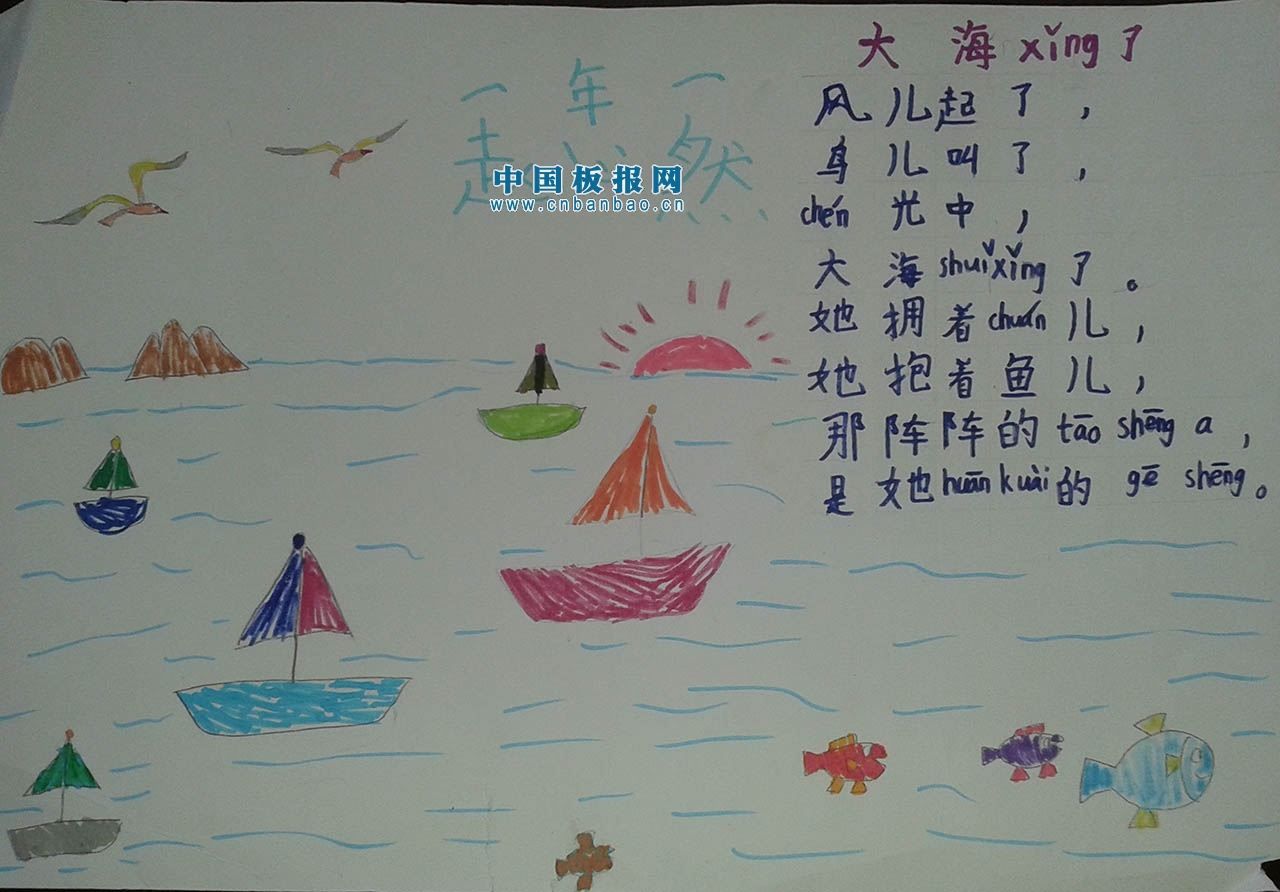 一年一
赵 然
中国板报网
www.cnbanbao.cn
大海xǐng了
风儿起了，
鸟儿叫了，
chén光中，
大海shuǐxǐng了。
她拥着chuán儿，
她抱着鱼儿，
那阵阵的tāo shēng a，
是她huān kuài的gē shēng。